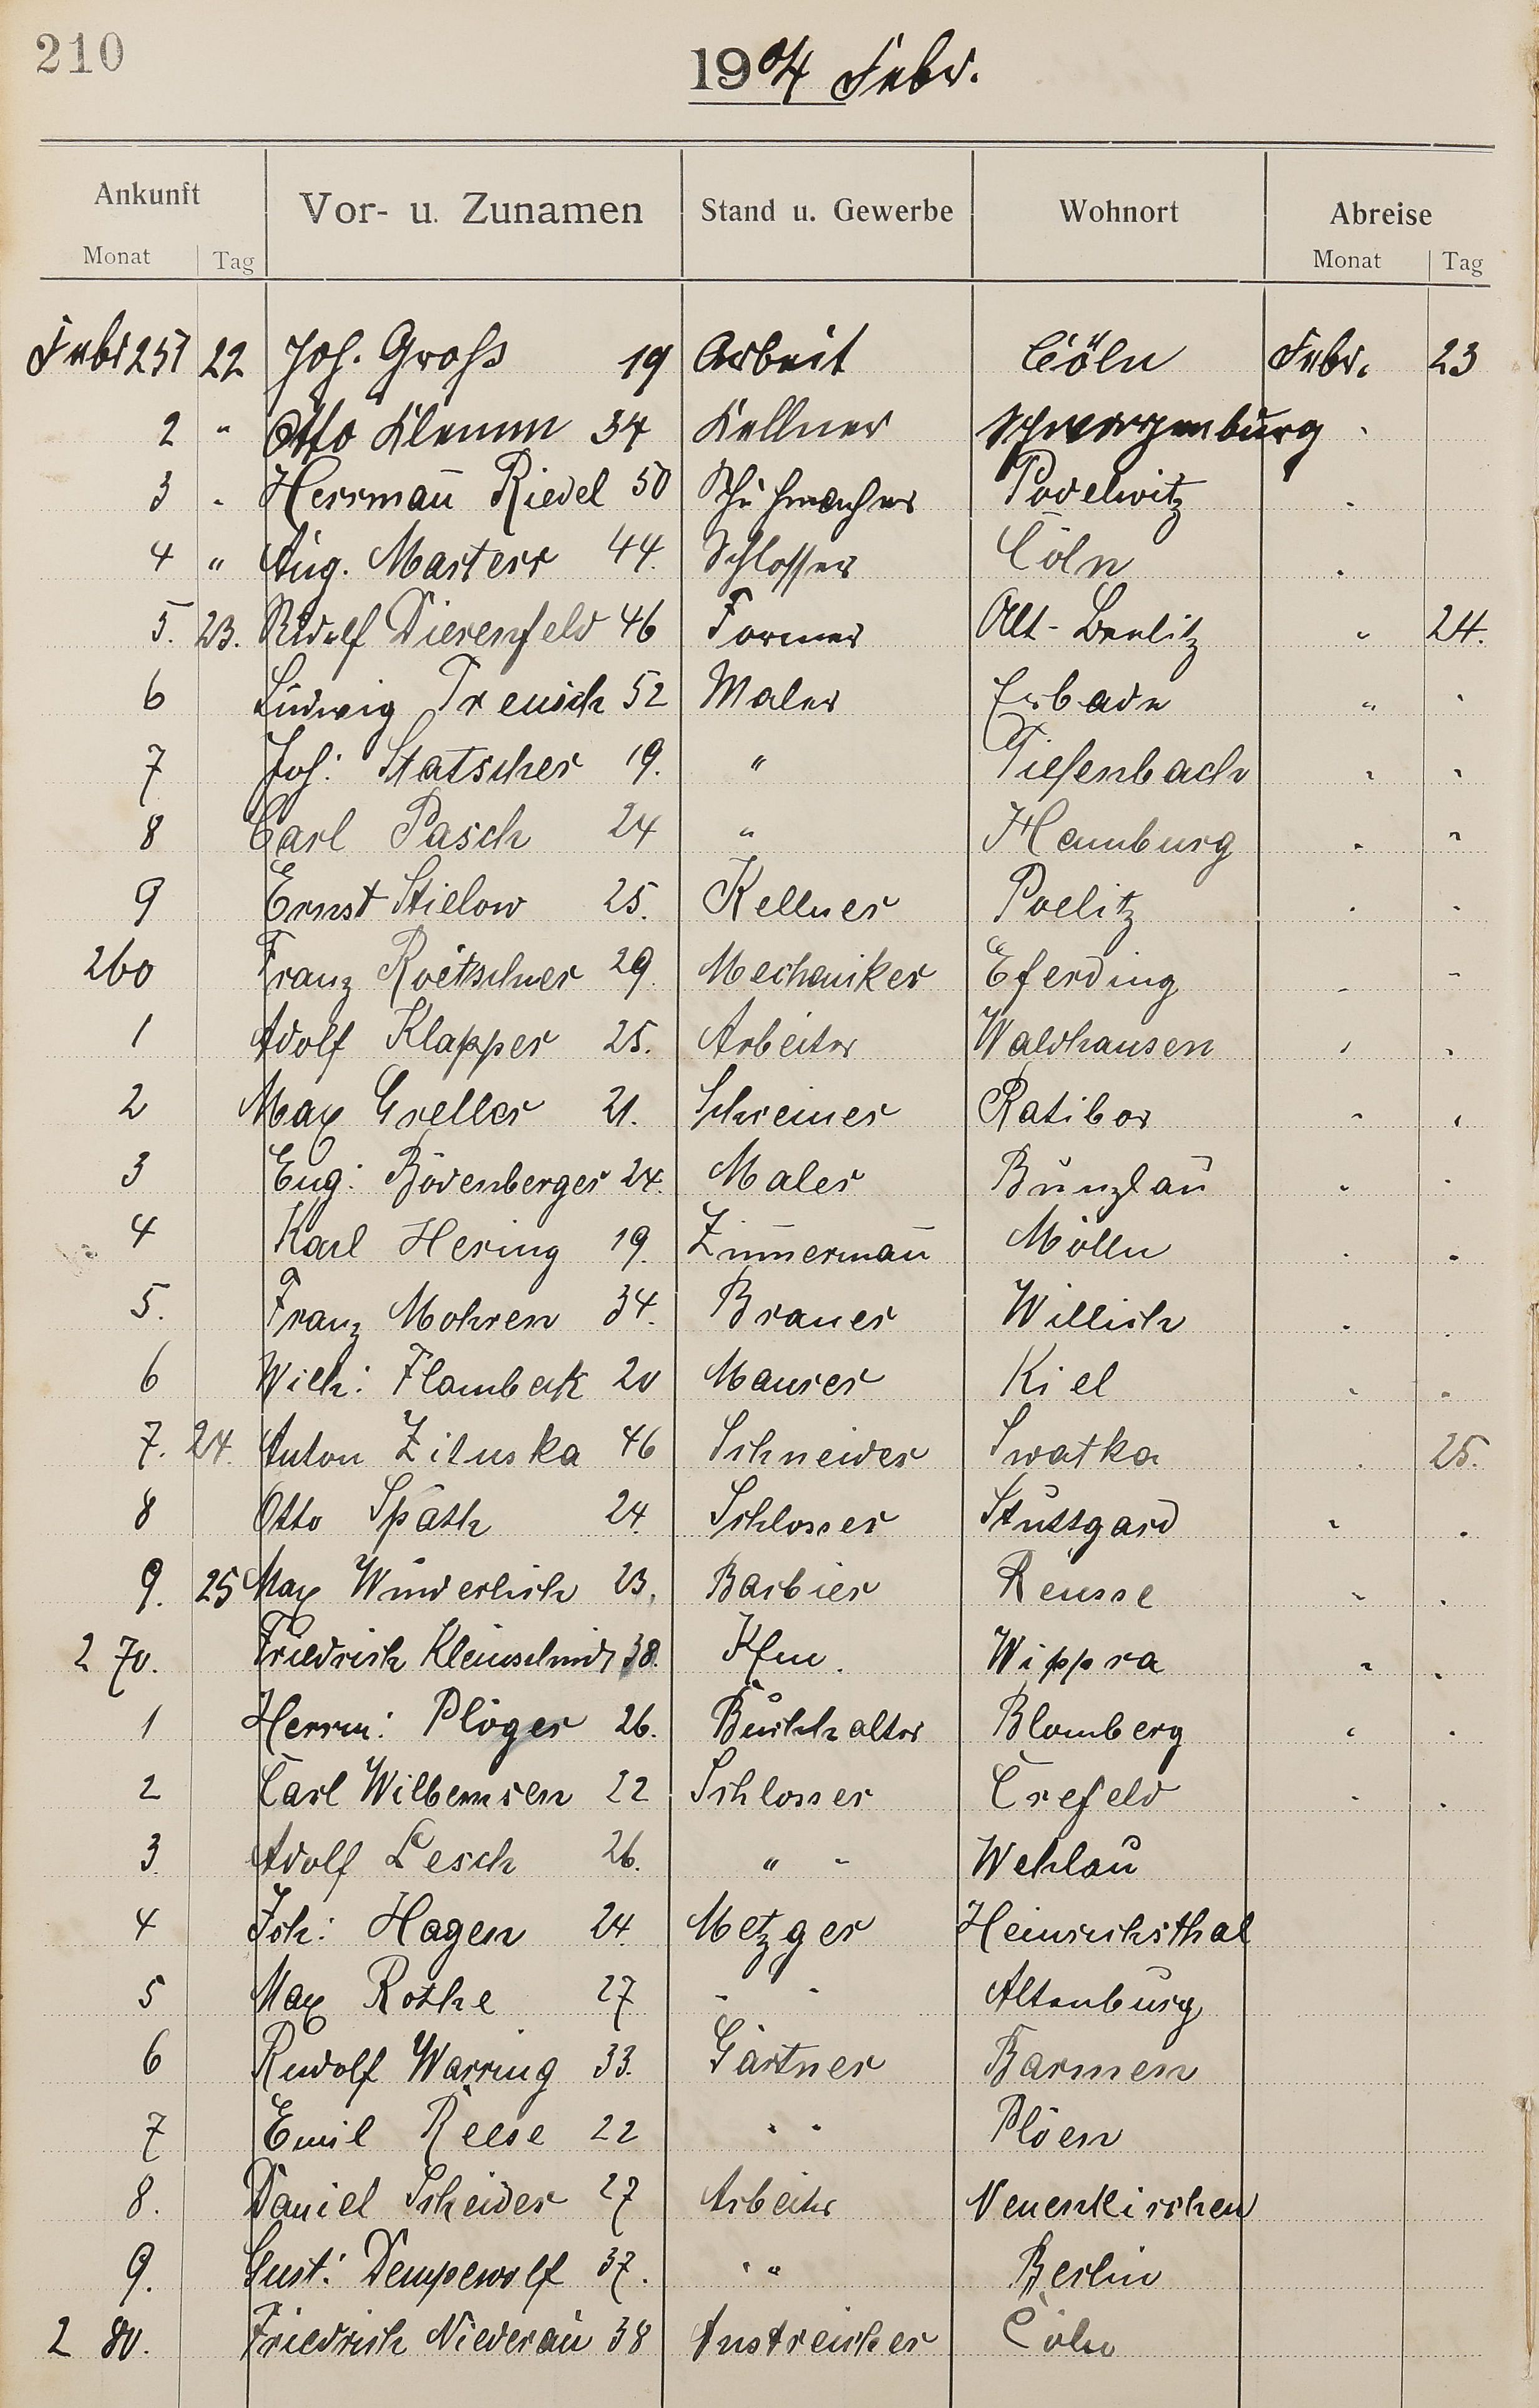 210
1904 Febr.
Ankunft Vor- u. Zunamen Stand u. Gewerbe Wohnort Abreise
Monat Tag Monat Tag
Febr 251 22 Joh. Groß 19 Arbeit Cöln Febr. 23
2 " Otto Klemm 34 Kellner "
3 " Herrmañ Riedel 50 Schuhmacher Podelwitz "
4 " Aug. Marterr 44. Schlosser Cöln "
5. 23. Rudolf Dierenfeld 46 Former Alt- " 24.
6 Ludwig Treusch 52 Maler Erbade " "
7 Joh: Statscher 19. " Tiefenbach " "
8 Carl Pasch 24 " Hamburg " "
9 Ernst Stielow 25. Kellner Poelitz " "
260 Franz Roetschner 29. Mechaniker Eferding " "
1 Adolf Klapper 25. Arbeiter Waldhausen " "
2 Max Greller 21. Schreiner Ratibor " "
3 Eug: Bödenberger 24. Maler Bunzlau " "
4 Karl Hering 19. Zim̄ermañ Mölln " "
5. Franz Mohren 34. Brauer Willich " "
6 Wilh: Flambeck 20 Maurer Kiel " "
7. 24. Anton Ziluska 46 Schneider Swatka " 25.
8 Otto Späth 24. Schlosser Stuttgard " "
9. 25 Max Wunderlich 23. Barbier Reusse " "
270. Friedrich Kleinschmidt 38. Kfm. Wippra " "
1 Herrm: Plöger 26. Buchhalter Blomberg " "
2 Carl Wilbemsen 22 Schlosser Crefeld " "
3. Adolf Lesch 26. " " Wehlau
4 Joh: Hagen 24. Metzger Heinrichsthal
5 Max Rothe 27 " " Altenburg
6 Rudolf Warring 33. Gärtner Barmen
7 Emil Reese 22 " " Plöen
8. Daniel Scheider 27 Arbeiter Neuenkirchen
9. Gust: Dempewolf 37. " " Berlin
280. Friedrich Niederau 38 Anstreicher Cöln